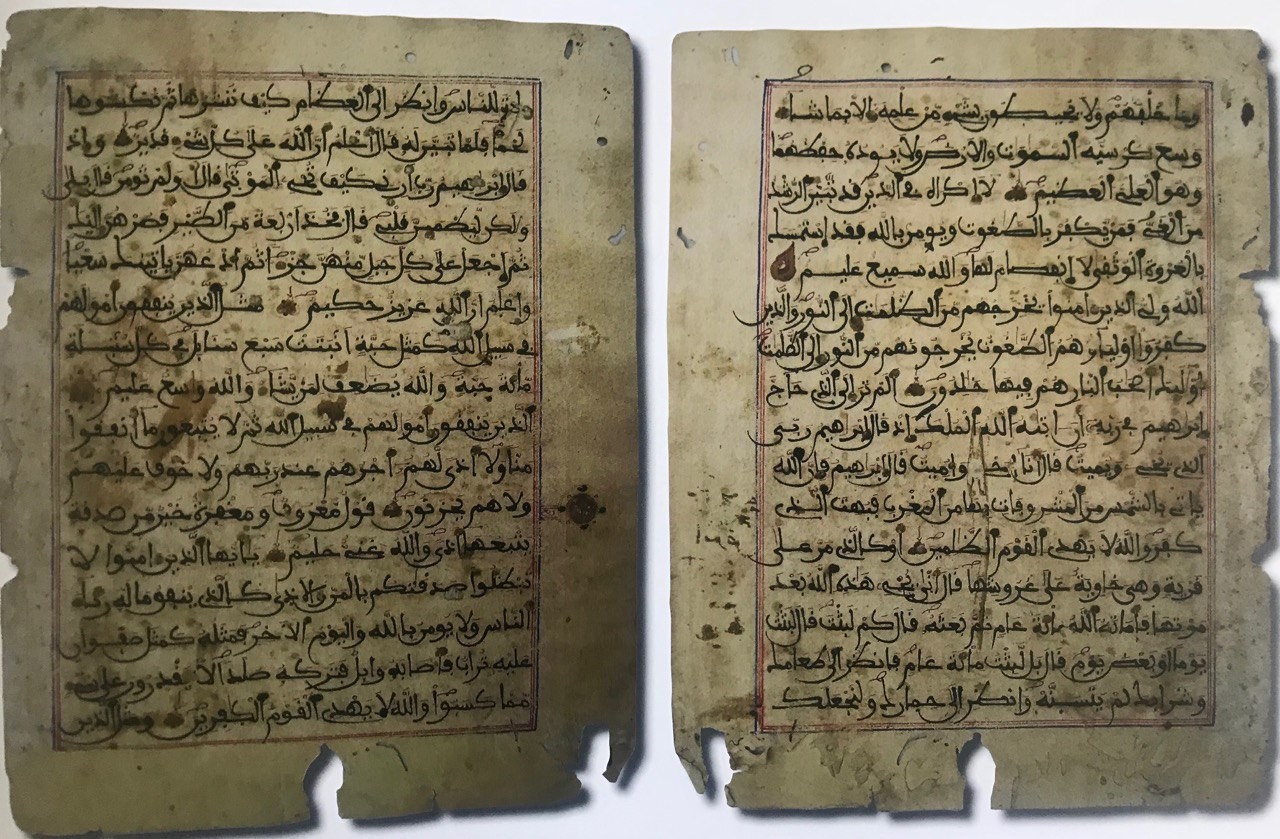 وما خلفهم ولا يحيطون بشيء من علمه إلا بما شاء
وسع كرسيه السموت والارض ولا يوده حفظهما
وهو العلي العظيم لا إكراه في الدين قد تبين الرشد
من الغي فمن يكفر بالطغوت ويومن بالله فقد إستمسك
بالعروة الوثقى لا إنفصام لها والله سميع عليم
الله ولي الذين امنوا يخرجهم من الظلمت إلى النور والذين
كفروا أولياؤهم الطغوت يخرجونهم من النور إلى الظلمت
أوليك أصحب النار هم فيها خلدون ألم تر إلى الذي حاج
إبرهيم في ربه أن اتيه الله الملك إذ قال إبرهيم ربي
الذي يحي ويميت قال أنا أحي وأميت قال إبرهيم فإن الله
ياتي بالشمس من المشرق فات بها من المغرب فبهت الذي
كفر والله لا يهدي القوم الظلمين أو كالذي مر على
قرية وهي خاوية على عروشها قال أنى يحي هذه الله بعد
موتها فأماته الله مائة عام ثم بعثه قال كم لبثت قال لبثت
يوما أو بعض يوم قال بل لبثت مائة عام فانظر إلى طعامك
وشرابك لم يتسنه وانظر إلى حمارك ولنجعلك
ءاية للناس وانظر إلى العظام كيف ننشرها ثم نكسوها
لحما فلما تبين له قال أعلم أن الله على كل شيء قدير وإذ
قال إبرهيم رب أرني كيف تحي الموتى قال أولم تومن قال بلى
ولكن ليطمين قلبي قال فخذ أربعة من الطير فصرهن إليك
ثم إجعل على كل جبل منهن جزءا ثم ادعهن ياتينك سعيا
واعلم أن الله عزيز حكيم مثل الذين ينفقون أمولهم
في سبيل الله كمثل حبة أنبتت سبع سنابل في كل سنبلة
مائة حبة والله يضعف لمن يشاء والله واسع عليم
الذين ينفقون أمولهم في سبيل الله ثم لا يتبعون ما أنفقوا
منا ولا أذى لهم أجرهم عند ربهم ولا خوف عليهم
ولا هم يحزنون قول معروف ومغفرة خير من صدقة
يتبعها أذى والله غني حليم يايها الذين امنوا لا
تبطلوا صدقتكم بالمن والاذى كالذي ينفق ماله رياء
الناس ولا يومن بالله واليوم الاخر فمثله كمثل صفوان
عليه تراب فأصابه وابل فتركه صلدا لا يقدرون على شيء
مما كسبوا والله لا يهدي القوم الكفرين ومثل الذين